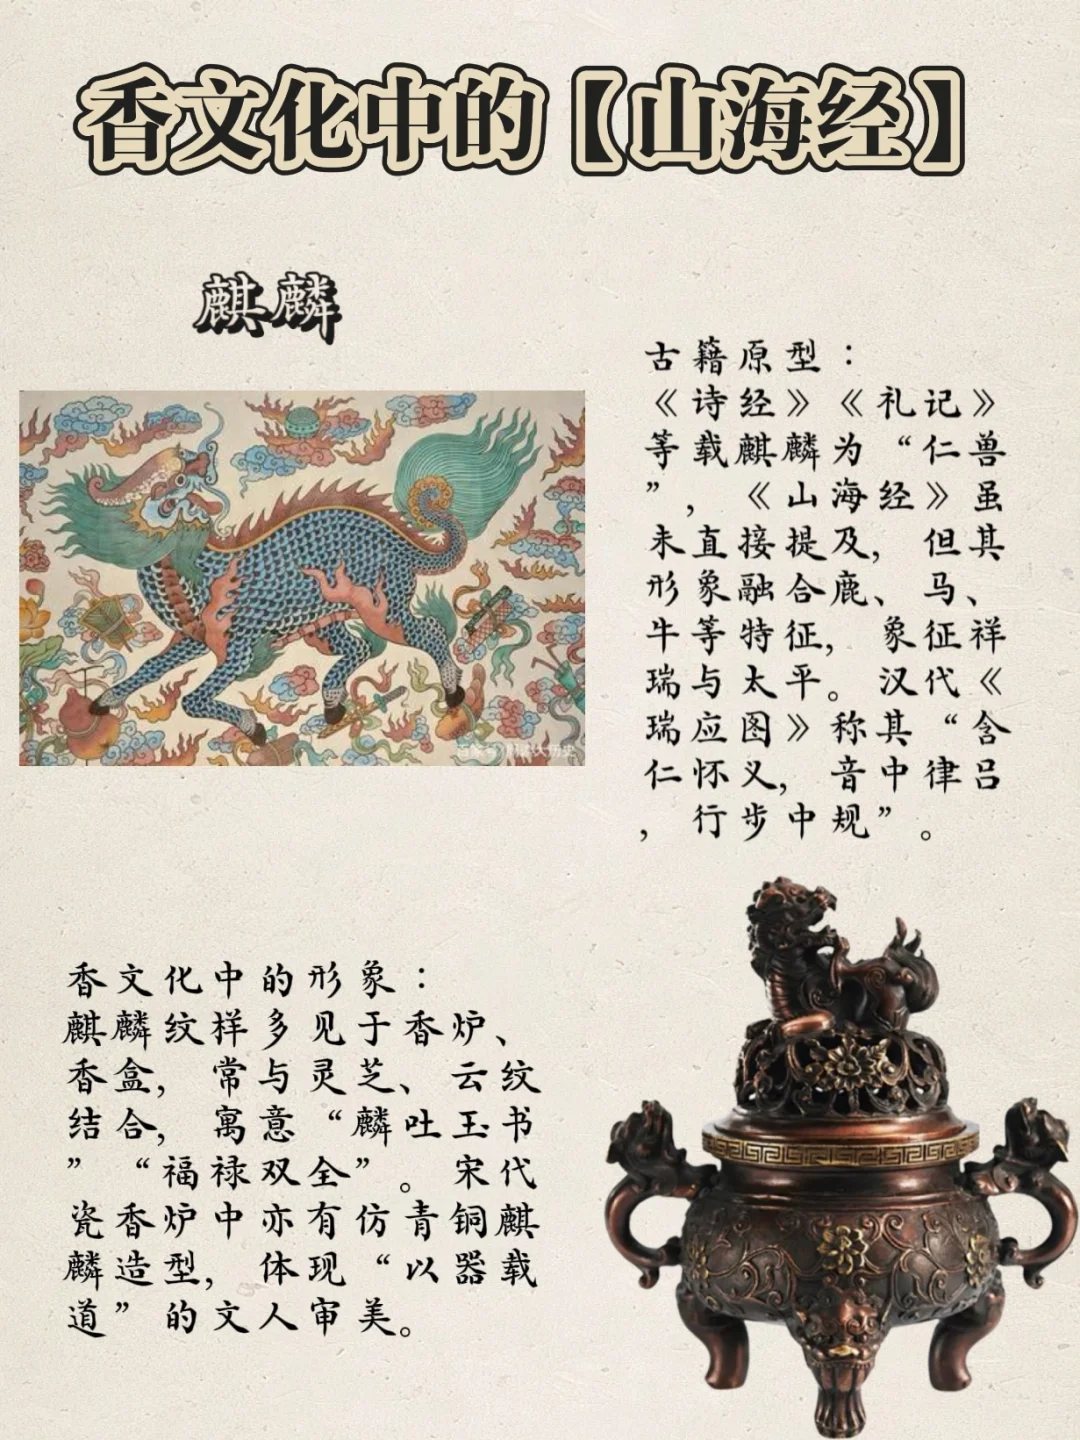 香文化中的【山海经】
麒麟
古籍原型：
《诗经》《礼记》
等载麒麟为“仁兽
”，《山海经》虽
未直接提及，但其
形象融合鹿、马、
牛等特征，象征祥
瑞与太平。汉代《
瑞应图》称其“含
仁怀义，音中律吕
，行步中规”。
香文化中的形象：
麒麟纹样多见于香炉、
香盒，常与灵芝、云纹
结合，寓意“麟吐玉书
”“福禄双全”。宋代
瓷香炉中亦有仿青铜麒
麟造型，体现“以器载
道”的文人审美。